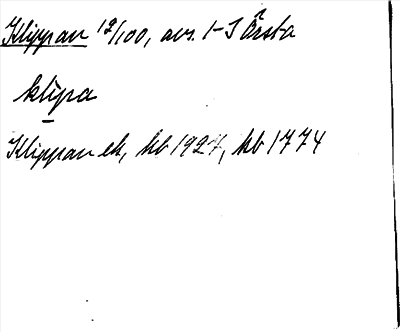 Klippan 12/100, avs. 1-3 Årsta
klipa
Klippan ek, kb 1927, kb 1774